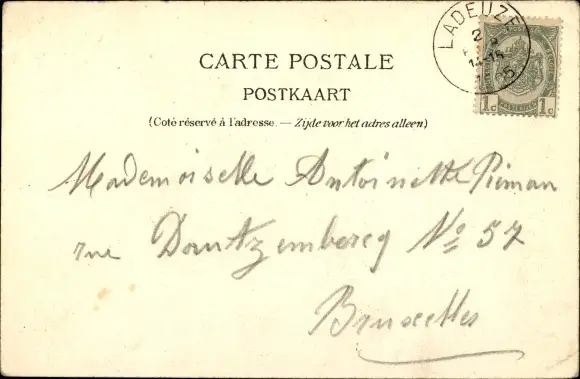 LADEUZE
2
14-15
05
1c 1c
CARTE POSTALE
POSTKAART
(Coté réservé à l'adresse. — Zijde voor het adres alleen)
Mademoiselle Antoinette Pieman
rue Dautzemberg No 57
Bruxelles